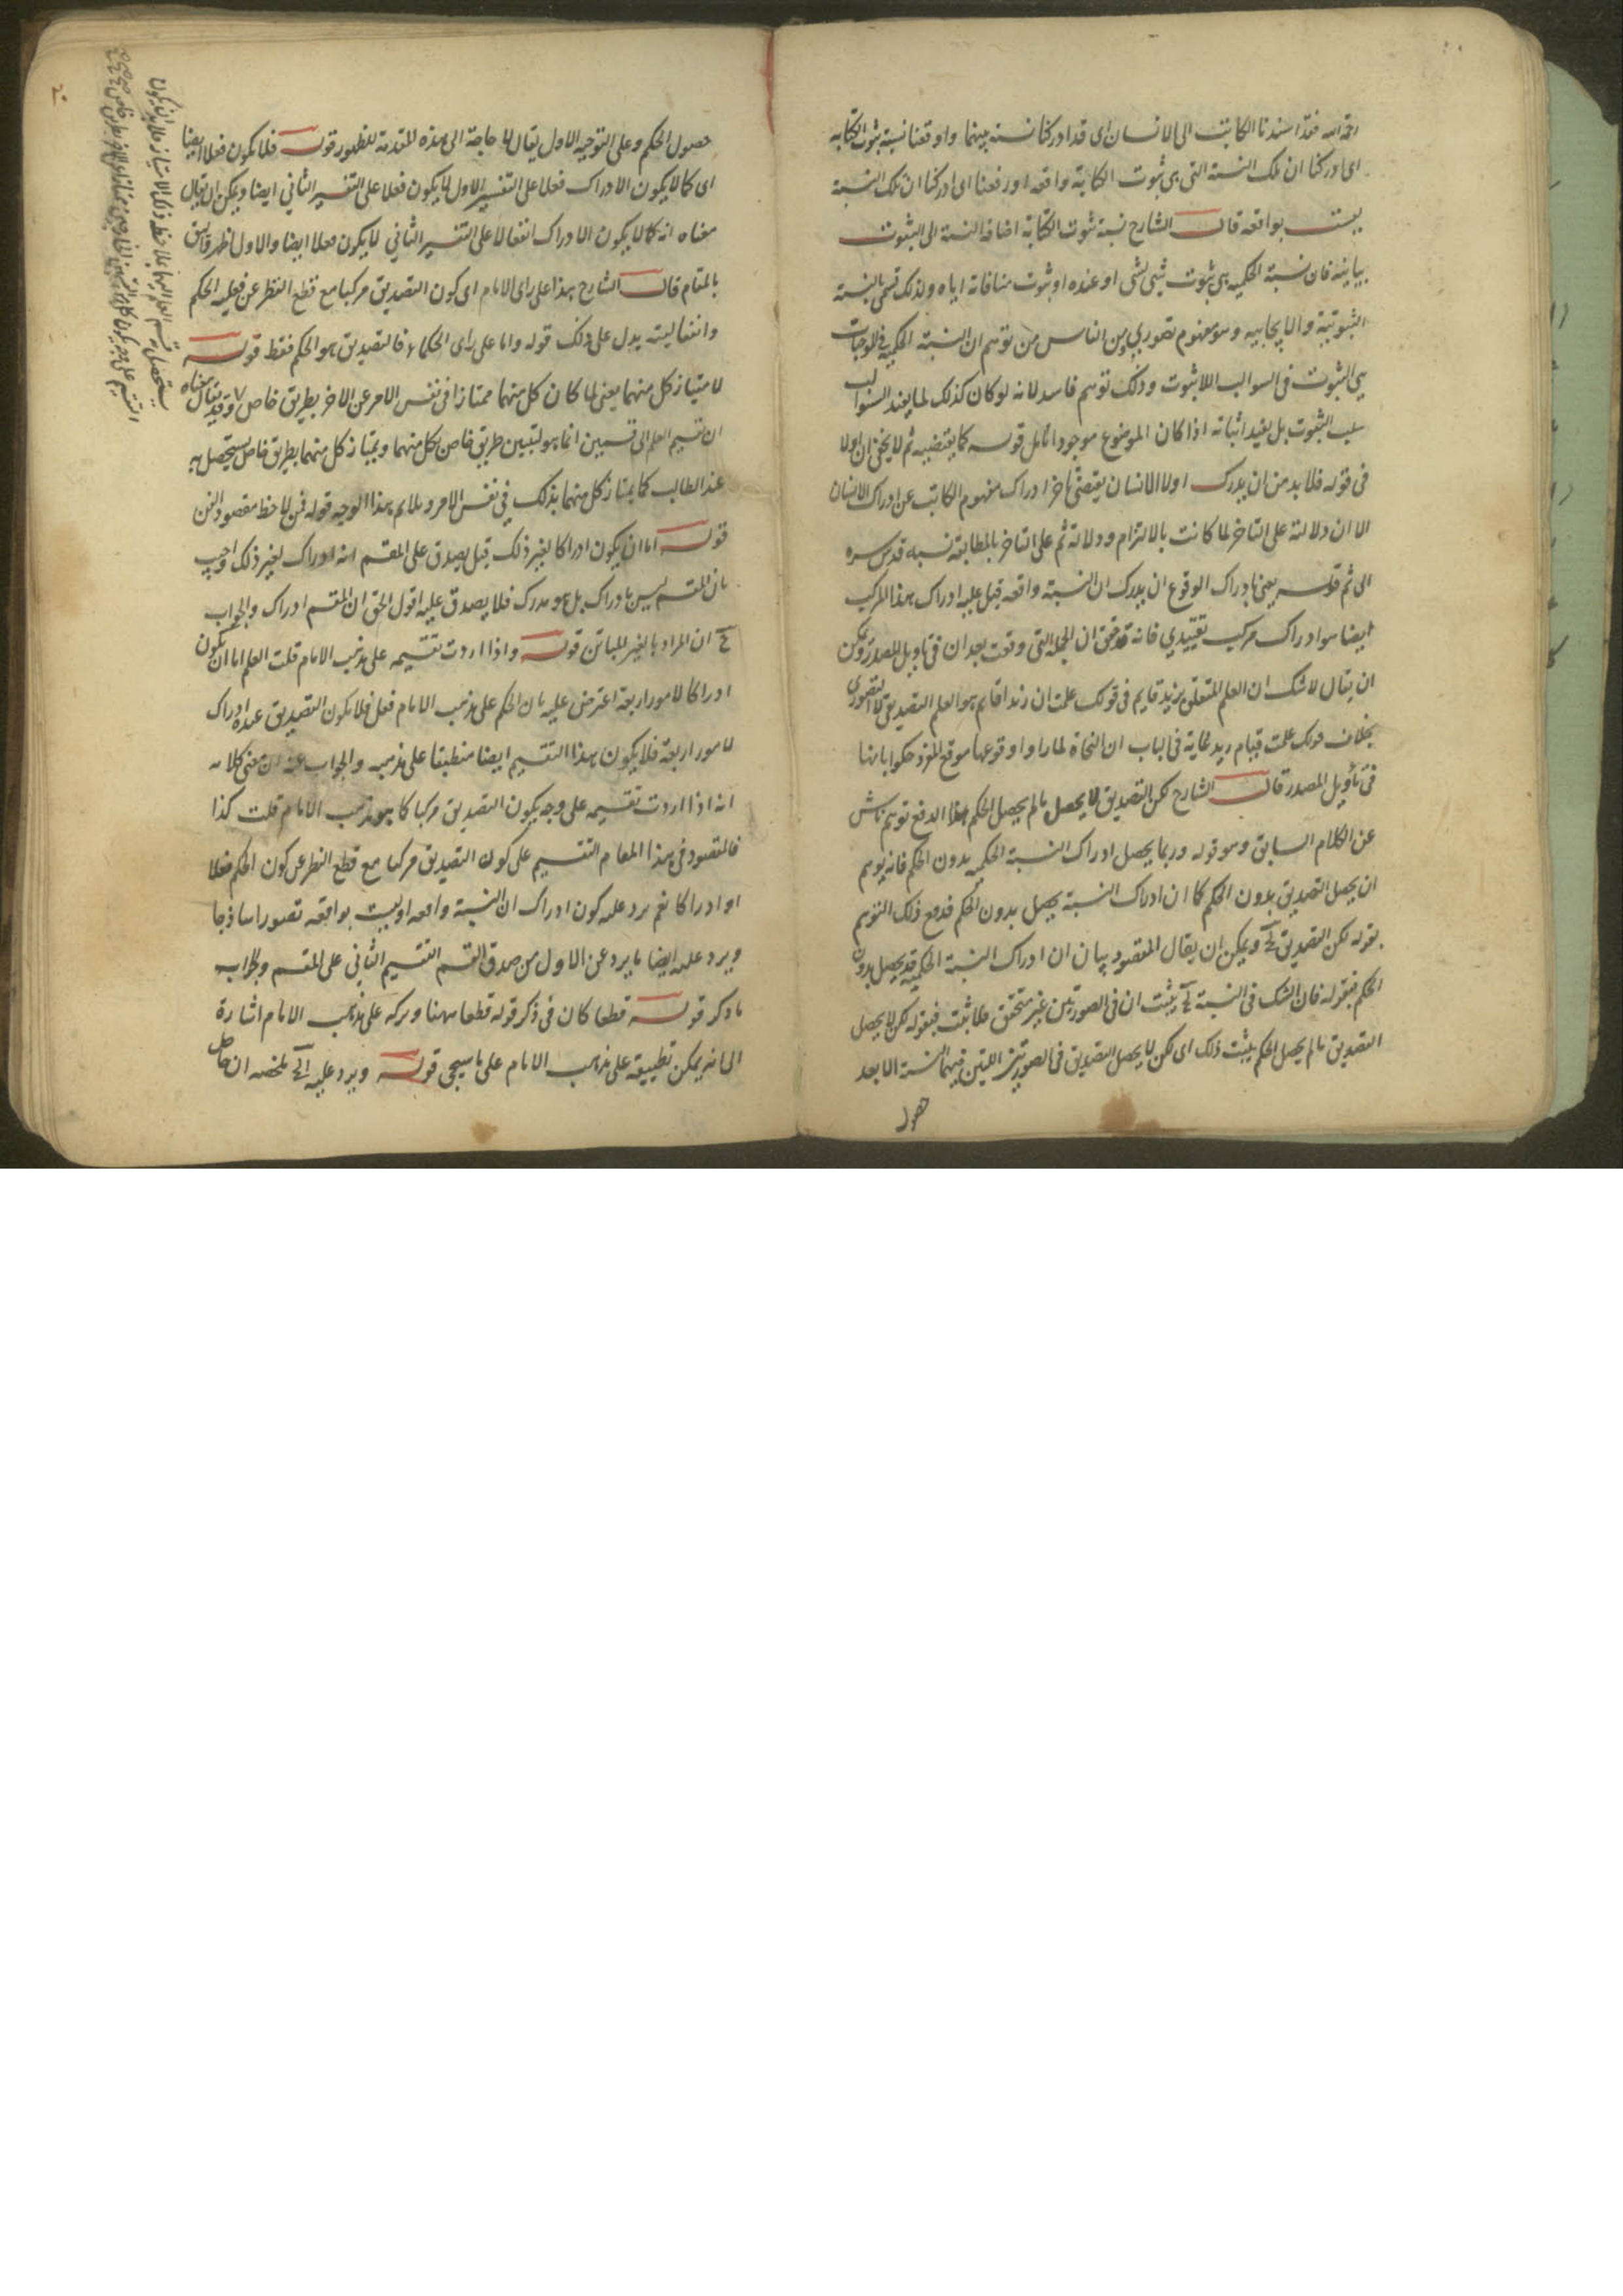 فقد اسندنا الكاتب الى الانسان اى قد ادركنا نسبة بينهما واوقعنا نسبة ثبوت الكتابه
اى ادركنا ان تلك النسبة التى هى ثبوت الكتابة واقعه او رفعنا اى ادركنا ان تلك النسبة
ليست بواقعه قال الشارح نسبة ثبوت الكتابة اضافة النسبة الى الثبوت
بيانية فان نسبة الحكميه هى ثبوت شئ لشئ او عنده او ثبوت منافاته اياه ولذلك تسمى بالنسبة
الثبوتية والايجابيه وهو مفهوم تصورى من الناس من توهم ان النسبة الحكمية فى الموجبات
هى الثبوت فى السوالب اللاثبوت وذلك توهم فاسد لانه لو كان كذلك لما يفيد السوالب
سلب الثبوت بل يفيد اثباته اذا كان الموضوع موجودا تامل قوله كما يقتضيه ثم لا يخفى ان اولا
فى قوله فلا بد من ان يدرك اولا الانسان يقتضى تاخر ادراك مفهوم الكاتب عن ادراك الانسان
الا ان دلالته على التاخر لما كانت بالالتزام ودلالة ثم على التاخر بالمطابقة نسبه قدس سره
الى ثم قوله يعنى بادراك الوقوع ان يدرك ان النسبة واقعه قيل عليه ادراك هذا المركب
ايضا هو ادراك مركب تقييدي فانه قد تحقق ان الجملة التى وقعت بعد ان فى تاويل المصدر ويمكن
ان يقال لا شك ان العلم المتعلق بزيد قايم فى قولك علمت ان زيدا قايم هو العلم التصديقى لا التصورى
بخلاف قولك علمت قيام زيد غاية فى الباب ان النحاة لما راوا وقوعها موقع المفرد حكموا بانها
فى تأويل المصدر قال الشارح لكن التصديق لا يحصل ما لم يحصل الحكم هذا لدفع توهم ناش
عن الكلام السابق وهو قوله وربما يحصل ادراك النسبة الحكميه بدون الحكم فانه يوهم
ان يحصل التصديق بدون الحكم كما ان ادراك النسبة يحصل بدون الحكم فدفع ذلك التوهم
بقوله لكن التصديق الخ ويمكن ان يقال المقصود بيان ان ادراك النسبة الحكمية قد يحصل بدون
الحكم فبقوله فان الشك فى النسبة الخ يثبت ان فى الصورتين غير متحقق فلا ثبت فبقوله لكن لا يحصل
التصديق ما لم يحصل الحكم يثبت ذلك اى لكن لا يحصل التصديق فى الصورتين اللتين فيهما النسبة الا بعد
حصول
٢٠
حصول الحكم وعلى التوجيه الاول يقال لا حاجة الى هذه المقدمة لظهور قوله فلا يكون فعلا ايضا
اى كما لا يكون الادراك فعلا على التفسير الاول لا يكون فعلا على التفسير الثاني ايضا ويمكن ان يقال
معناه انه كما لا يكون الادراك انفعالا على التفسير الثاني لا يكون فعلا ايضا والاول اظهر واليق
بالمقام قال الشارح هذا على راى الامام اى كون التصديق مركبا مع قطع النظر عن فعلية الحكم
وانفعاليته يدل على ذلك قوله واما على راى الحكماء فالتصديق هو الحكم فقط قوله
لامتياز كل منهما يعنى لما كان كل منهما ممتازا فى نفس الامر عن الاخر بطريق خاص وقد يقال معناه
ان تقسيم العلم الى قسمين انما هو لتبيين طريق خاص لكل منهما ويمتاز كل منهما بطريق خاص يستحصل به
عند الطالب كما يمتاز كل منهما بذلك فى نفس الامر ويلايم هذا الوجه قوله فمن لاحظ مقصود الفن
قوله اما ان يكون ادراكا لغير ذلك قيل يصدق على المقسم انه ادراك لغير ذلك اجيب
بان المقسم ليس بادراك بل هو مدرك فلا يصدق عليه اقول الحق ان المقسم ادراك والجواب
ح ان المراد بالغير المباين قوله واذا اردت تقسيمه على مذهب الامام قلت العلم اما ان يكون
ادراكا لامور اربعة اعترض عليه بان الحكم على مذهب الامام فعل فلا يكون التصديق عنده ادراك
لامور اربعة فلا يكون هذا التقسيم ايضا منطبقا على مذهبه والجواب عنه ان معنى كلامه
انه اذا اردت تقسيمه على وجه يكون التصديق مركبا كما هو مذهب الامام قلت كذا
فالمقصود فى هذا المقام التقسيم على كون التصديق مركبا مع قطع النظر عن كون الحكم فعلا
او ادراكا نعم يرد عليه كون ادراك ان النسبة واقعه او ليست بواقعه تصورا ساذجا
ويرد عليه ايضا ما يرد على الاول من صدق القسم التقسيم الثاني على المقسم وجوابه
ما ذكر قوله قطعا كان فى ذكر قوله قطعا ههنا وتركه على مذهب الامام اشارة
الى انه يمكن تطبيقه على مذهب الامام على ما سيجى قوله ويرد عليه الخ ملخصه ان حاصل